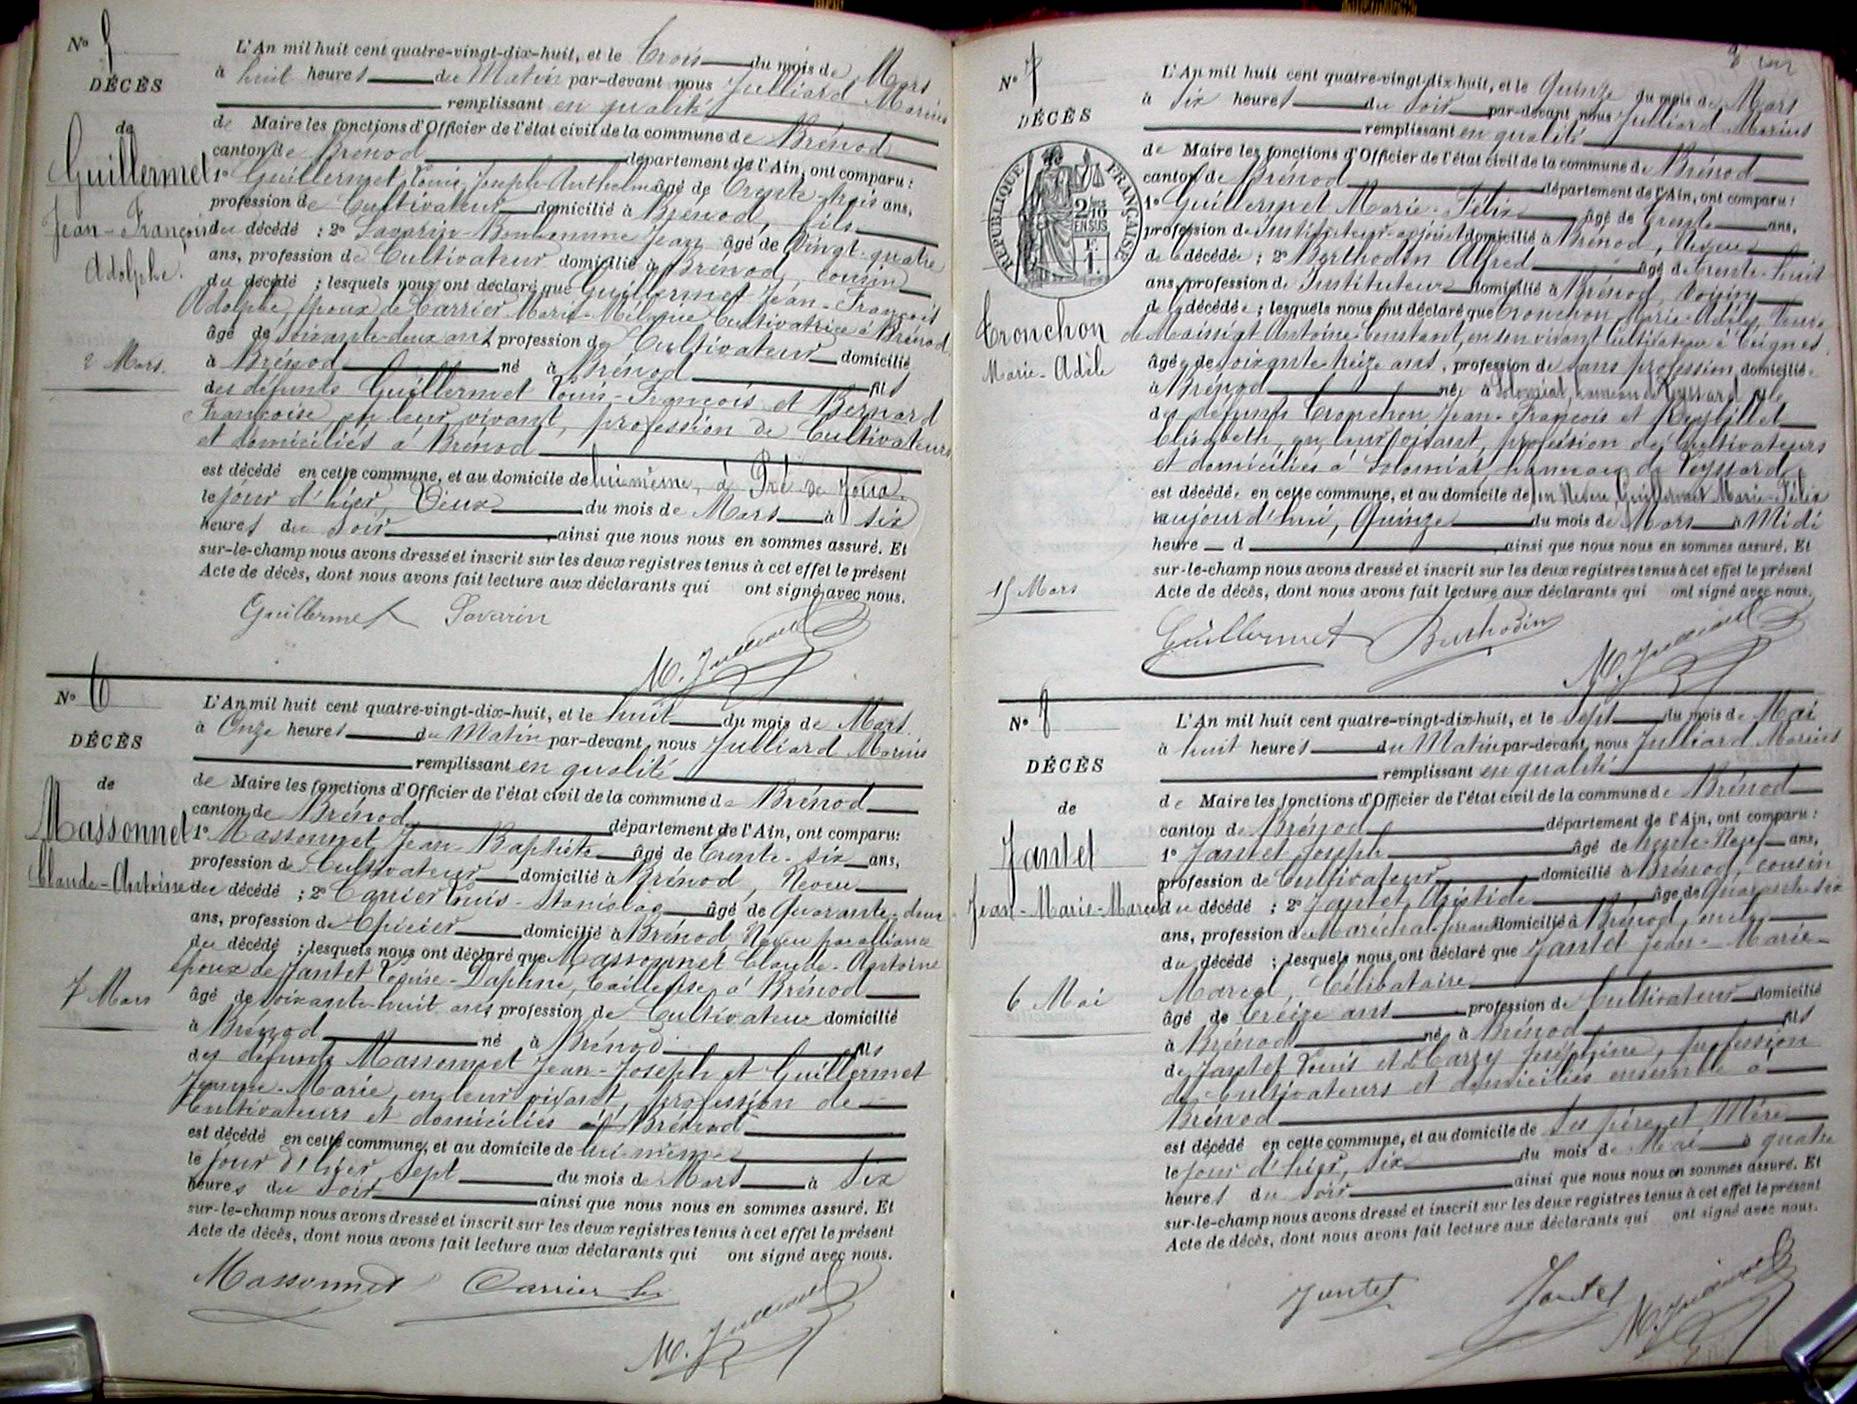 N° 5
DÉCÈS
de
Guillermet
Jean-François
Adolphe.
2 Mars.
L'An mil huit cent quatre-vingt-dix-huit, et le Trois du mois de Mars
à huit heures du Matin par-devant nous Julliard Marius
remplissant en qualité
de Maire les fonctions d'Officier de l'état civil de la commune de Brénod
canton de Brénod département de l'Ain, ont comparu :
1° Guillermet Louis Joseph Anthelme âgé de Trente-trois ans,
profession de Cultivateur domicilié à Brénod, fils
du décédé ; 2° Savarin-Bonhomme Jean âgé de Vingt-quatre
ans, profession de Cultivateur domicilié à Brénod, cousin
du décédé ; lesquels nous ont déclaré que Guillermet Jean-François
Adolphe, époux de Carrier Marie-Mélanie Cultivatrice à Brénod
âgé de soixante-deux ans profession de Cultivateur domicilié
à Brénod né à Brénod fils
des défunts Guillermet Louis-François et Bernard
Françoise, en leur vivant, profession de Cultivateurs
et domiciliés à Brénod
est décédé en cette commune, et au domicile de lui-même, à Pré de Joux
le jour d'hier, Deux du mois de Mars à six
heures du soir ainsi que nous nous en sommes assuré. Et
sur-le-champ nous avons dressé et inscrit sur les deux registres tenus à cet effet le présent
Acte de décès, dont nous avons fait lecture aux déclarants qui ont signé avec nous.
Guillermet Savarin
M. Julliard
N° 6
DÉCÈS
de
Massonnet
Claude-Antoine
7 Mars
L'An mil huit cent quatre-vingt-dix-huit, et le huit du mois de Mars.
à Onze heures du Matin par-devant nous Julliard Marius
remplissant en qualité
de Maire les fonctions d'Officier de l'état civil de la commune de Brénod
canton de Brénod département de l'Ain, ont comparu:
1° Massonnet Jean-Baptiste âgé de Trente-six ans,
profession de Cultivateur domicilié à Brénod, Neveu
du décédé ; 2° Carrier Louis-Stanislas âgé de Quarante-deux
ans, profession de Épicier domicilié à Brénod Neveu par alliance
du décédé ; lesquels nous ont déclaré que Massonnet Claude-Antoine
époux de Jantet Louise-Daphne, Tailleuse à Brénod
âgé de soixante-huit ans profession de Cultivateur domicilié
à Brénod né à Brénod fils
des défunts Massonnet Jean-Joseph et Guillermet
Jeanne-Marie, en leur vivant, profession de
Cultivateurs et domiciliés à Brénod
est décédé en cette commune, et au domicile de lui-même
le jour d'hier, sept du mois de Mars à six
heures du soir ainsi que nous nous en sommes assuré. Et
sur-le-champ nous avons dressé et inscrit sur les deux registres tenus à cet effet le présent
Acte de décès, dont nous avons fait lecture aux déclarants qui ont signé avec nous.
Massonnet Carrier Ls
M. Julliard
N° 7
DÉCÈS
RÉPUBLIQUE FRANÇAISE
2/10 EN SUS
F.
1.
Tronchon
Marie-Adèle
15 Mars
L'An mil huit cent quatre-vingt-dix-huit, et le Quinze du mois de Mars
à six heures du soir par-devant nous Julliard Marius
remplissant en qualité
de Maire les fonctions d'Officier de l'état civil de la commune de Brénod
canton de Brénod département de l'Ain, ont comparu :
1° Guillermet Marie-Félix âgé de Trente ans,
profession de Instituteur-adjoint domicilié à Brénod, Neveu
de la décédée ; 2° Berthodin Alfred âgé de Trente-huit
ans, profession de Instituteur domicilié à Brénod, Voisin
de la décédée ; lesquels nous ont déclaré que Tronchon Marie-Adèle, Veuve
de Maissiat Antoine-Constant, en son vivant Cultivateur à Ceignes
âgée de soixante-treize ans, profession de sans profession domiciliée
à Brénod née à Solomiat, hameau de Leyssard fille
des défunts Tronchon Jean-François et Reybillet
Elisabeth, en leur vivant, profession de Cultivateurs
et domiciliés à Solomiat, hameau de Leyssard
est décédée en cette commune, et au domicile de son Neveu Guillermet Marie-Félix
aujourd'hui, Quinze du mois de Mars à Midi
heure d ainsi que nous nous en sommes assuré. Et
sur-le-champ nous avons dressé et inscrit sur les deux registres tenus à cet effet le présent
Acte de décès, dont nous avons fait lecture aux déclarants qui ont signé avec nous.
Guillermet Berthodin
M. Julliard
N° 8
DÉCÈS
de
Jantet
Jean-Marie-Marcel
6 Mai
L'An mil huit cent quatre-vingt-dix-huit, et le sept du mois de Mai
à huit heures du Matin par-devant nous Julliard Marius
remplissant en qualité
de Maire les fonctions d'Officier de l'état civil de la commune de Brénod
canton de Brénod département de l'Ain, ont comparu :
1° Jantet Joseph âgé de trente-Neuf ans,
profession de Cultivateur domicilié à Brénod, cousin
du décédé ; 2° Jantet Aristide âgé de Quarante-six
ans, profession de Maréchal-ferrant domicilié à Brénod, oncle
du décédé ; lesquels nous ont déclaré que Jantet Jean-Marie-
Marcel, Célibataire
âgé de treize ans profession de Cultivateur domicilié
à Brénod né à Brénod fils
de Jantet Louis et de Carry Joséphine, profession
de Cultivateurs et domiciliés ensemble à
Brénod
est décédé en cette commune, et au domicile de Ses père et Mère
le jour d'hier, six du mois de Mai à quatre
heures du soir ainsi que nous nous en sommes assuré. Et
sur-le-champ nous avons dressé et inscrit sur les deux registres tenus à cet effet le présent
Acte de décès, dont nous avons fait lecture aux déclarants qui ont signé avec nous.
Jantet Jantet M. Julliard